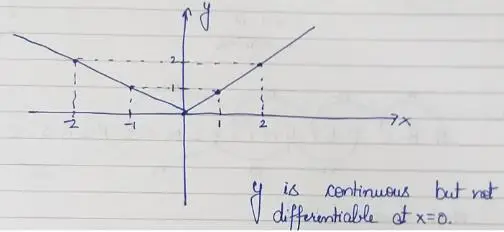 y
2
1
-2 -1 1 2 x
y is continuous but not
differentiable at x=0.